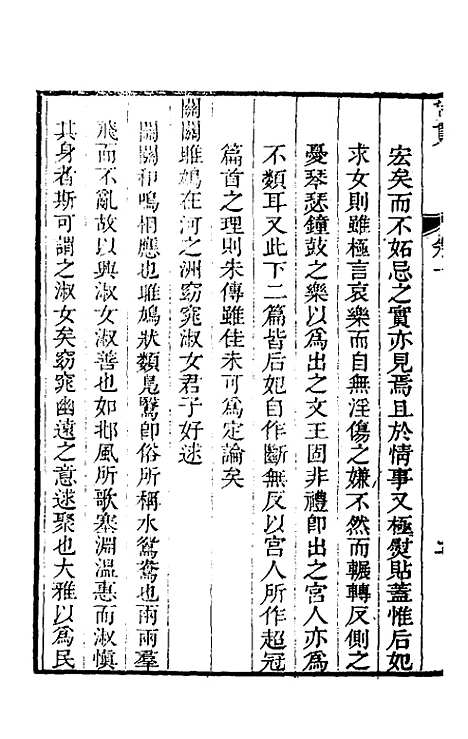 宏矣而不妬忌之實亦見焉且於情事又極熨貼蓋惟后妃
求女則雖極言哀樂而自無淫傷之嫌不然而輾轉反側之
憂琴瑟鐘鼓之樂以爲出之文王固非禮卽出之宮人亦爲
不類耳又此下二篇皆后妃自作斷無反以宮人所作超冠
篇首之理則朱傳雖佳未可爲定論矣
關關雎鳩在河之洲窈窕淑女君子好逑
關關和鳴相應也雎鳩狀類鳧鷖卽俗所稱水鴛鴦也兩兩羣
飛而不亂故以興淑女淑善也如邶風所歌塞淵溫惠而淑慎
其身者斯可謂之淑女矣窈窕幽遠之意逑聚也大雅以爲民